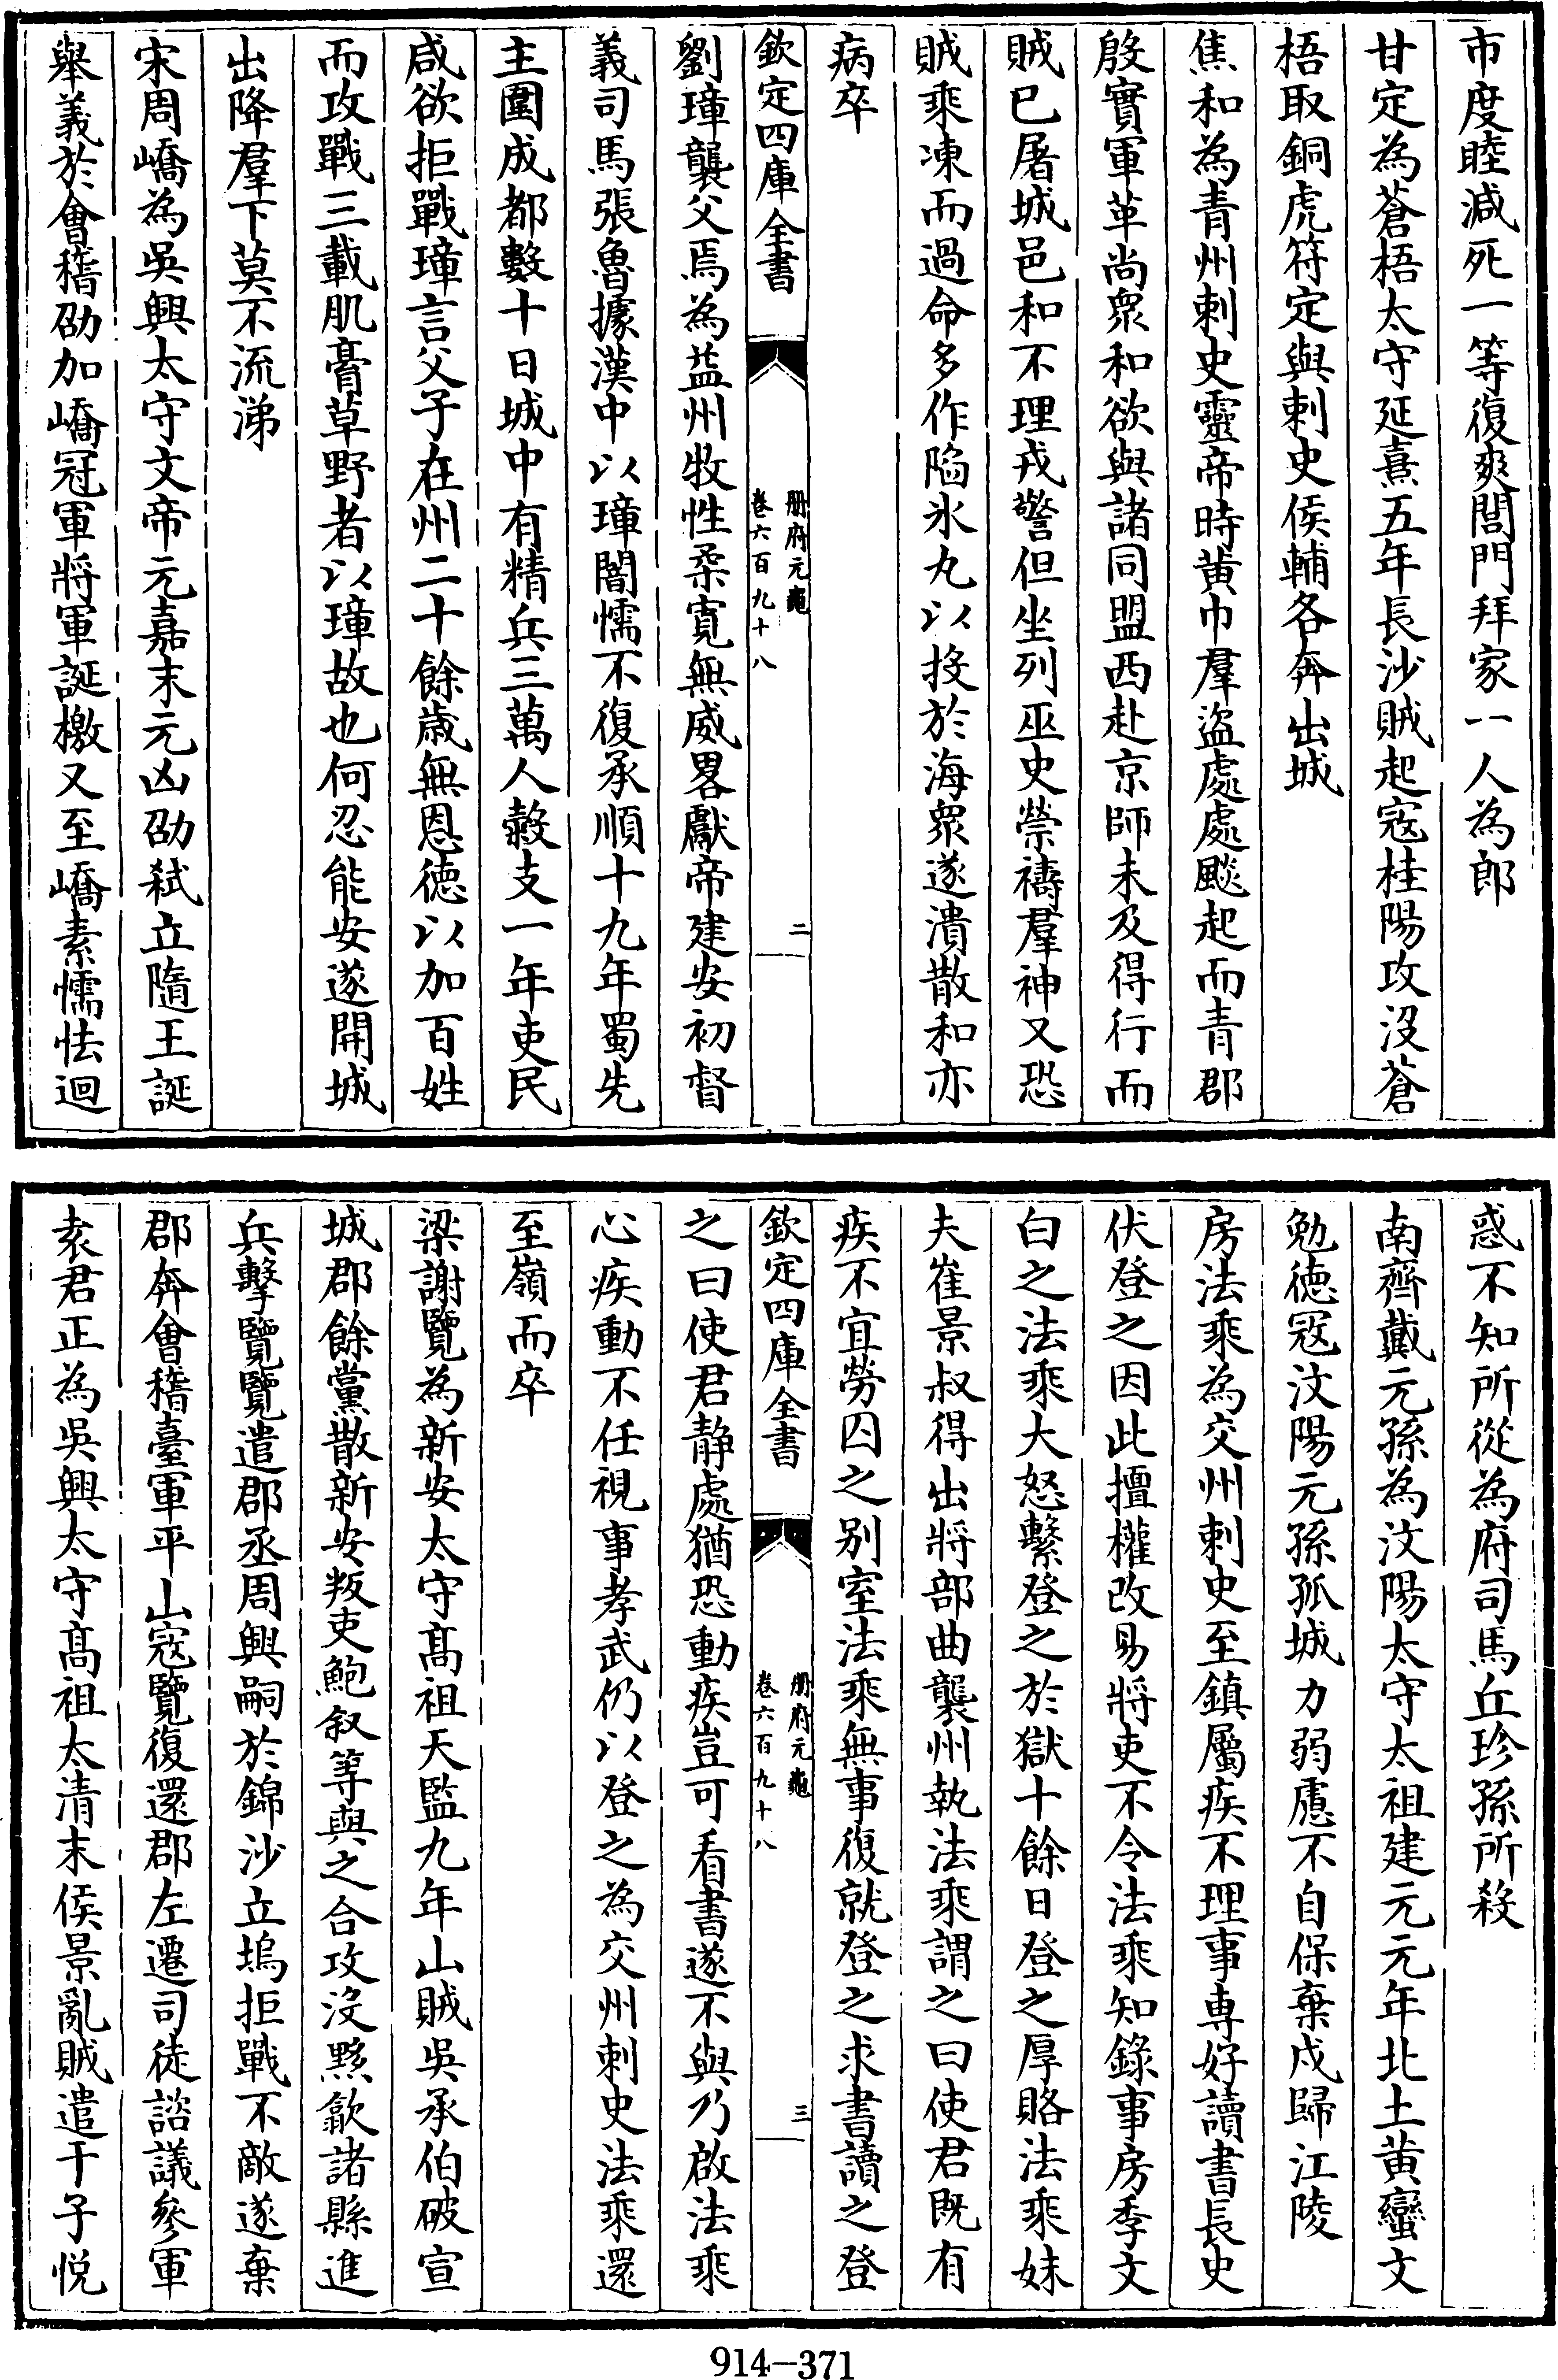 市度睦減死一等復爽閭門拜家一人為郎
甘定為蒼梧太守延熹五年長沙賊起寇桂陽攻沒蒼
梧取銅虎符定與刺史侯輔各奔出城
焦和為青州刺史靈帝時黄巾羣盜處處飈起而青郡
殷實軍革尚衆和欲與諸同盟西赴京師未及得行而
賊已屠城邑和不理戎警但坐列巫史禜禱羣神又恐
賊乘凍而過命多作陷氷丸以投於海衆遂潰散和亦
病卒
欽定四庫全書
册府元龜
卷六百九十八
二
劉璋襲父焉為益州牧性柔寛無威畧獻帝建安初督
義司馬張魯據漢中以璋闇懦不復承順十九年蜀先
主圍成都數十日城中有精兵三萬人穀支一年吏民
咸欲拒戰璋言父子在州二十餘歳無恩徳以加百姓
而攻戰三載肌膏草野者以璋故也何忍能安遂開城
出降羣下莫不流涕
宋周嶠為吳興太守文帝元嘉末元凶劭弑立隨王誕
舉義於會稽劭加嶠冠軍將軍誕檄又至嶠素懦怯迴
惑不知所從為府司馬丘珍孫所殺
南齊戴元孫為汶陽太守太祖建元元年北土黄蠻文
勉徳寇汶陽元孫孤城力弱慮不自保棄戍歸江陵
房法乘為交州刺史至鎮屬疾不理事専好讀書長史
伏登之因此擅權改易將吏不令法乘知錄事房季文
白之法乘大怒繫登之於獄十餘日登之厚賂法乘妹
夫崔景叔得出將部曲襲州執法乘謂之曰使君既有
疾不宜勞囚之别室法乘無事復就登之求書讀之登
欽定四庫全書
册府元龜
卷六百九十八
三
之曰使君静處猶恐動疾豈可看書遂不與乃啟法乘
心疾動不任視事孝武仍以登之為交州刺史法乘還
至嶺而卒
梁謝覽為新安太守髙祖天監九年山賊吳承伯破宣
城郡餘黨散新安叛吏鮑叙等與之合攻沒黟歙諸縣進
兵擊覽覽遣郡丞周興嗣於錦沙立塢拒戰不敵遂棄
郡奔會稽臺軍平山寇覽復還郡左遷司徒諮議參軍
袁君正為吳興太守髙祖太清末侯景亂賊遣于子悦
914-371